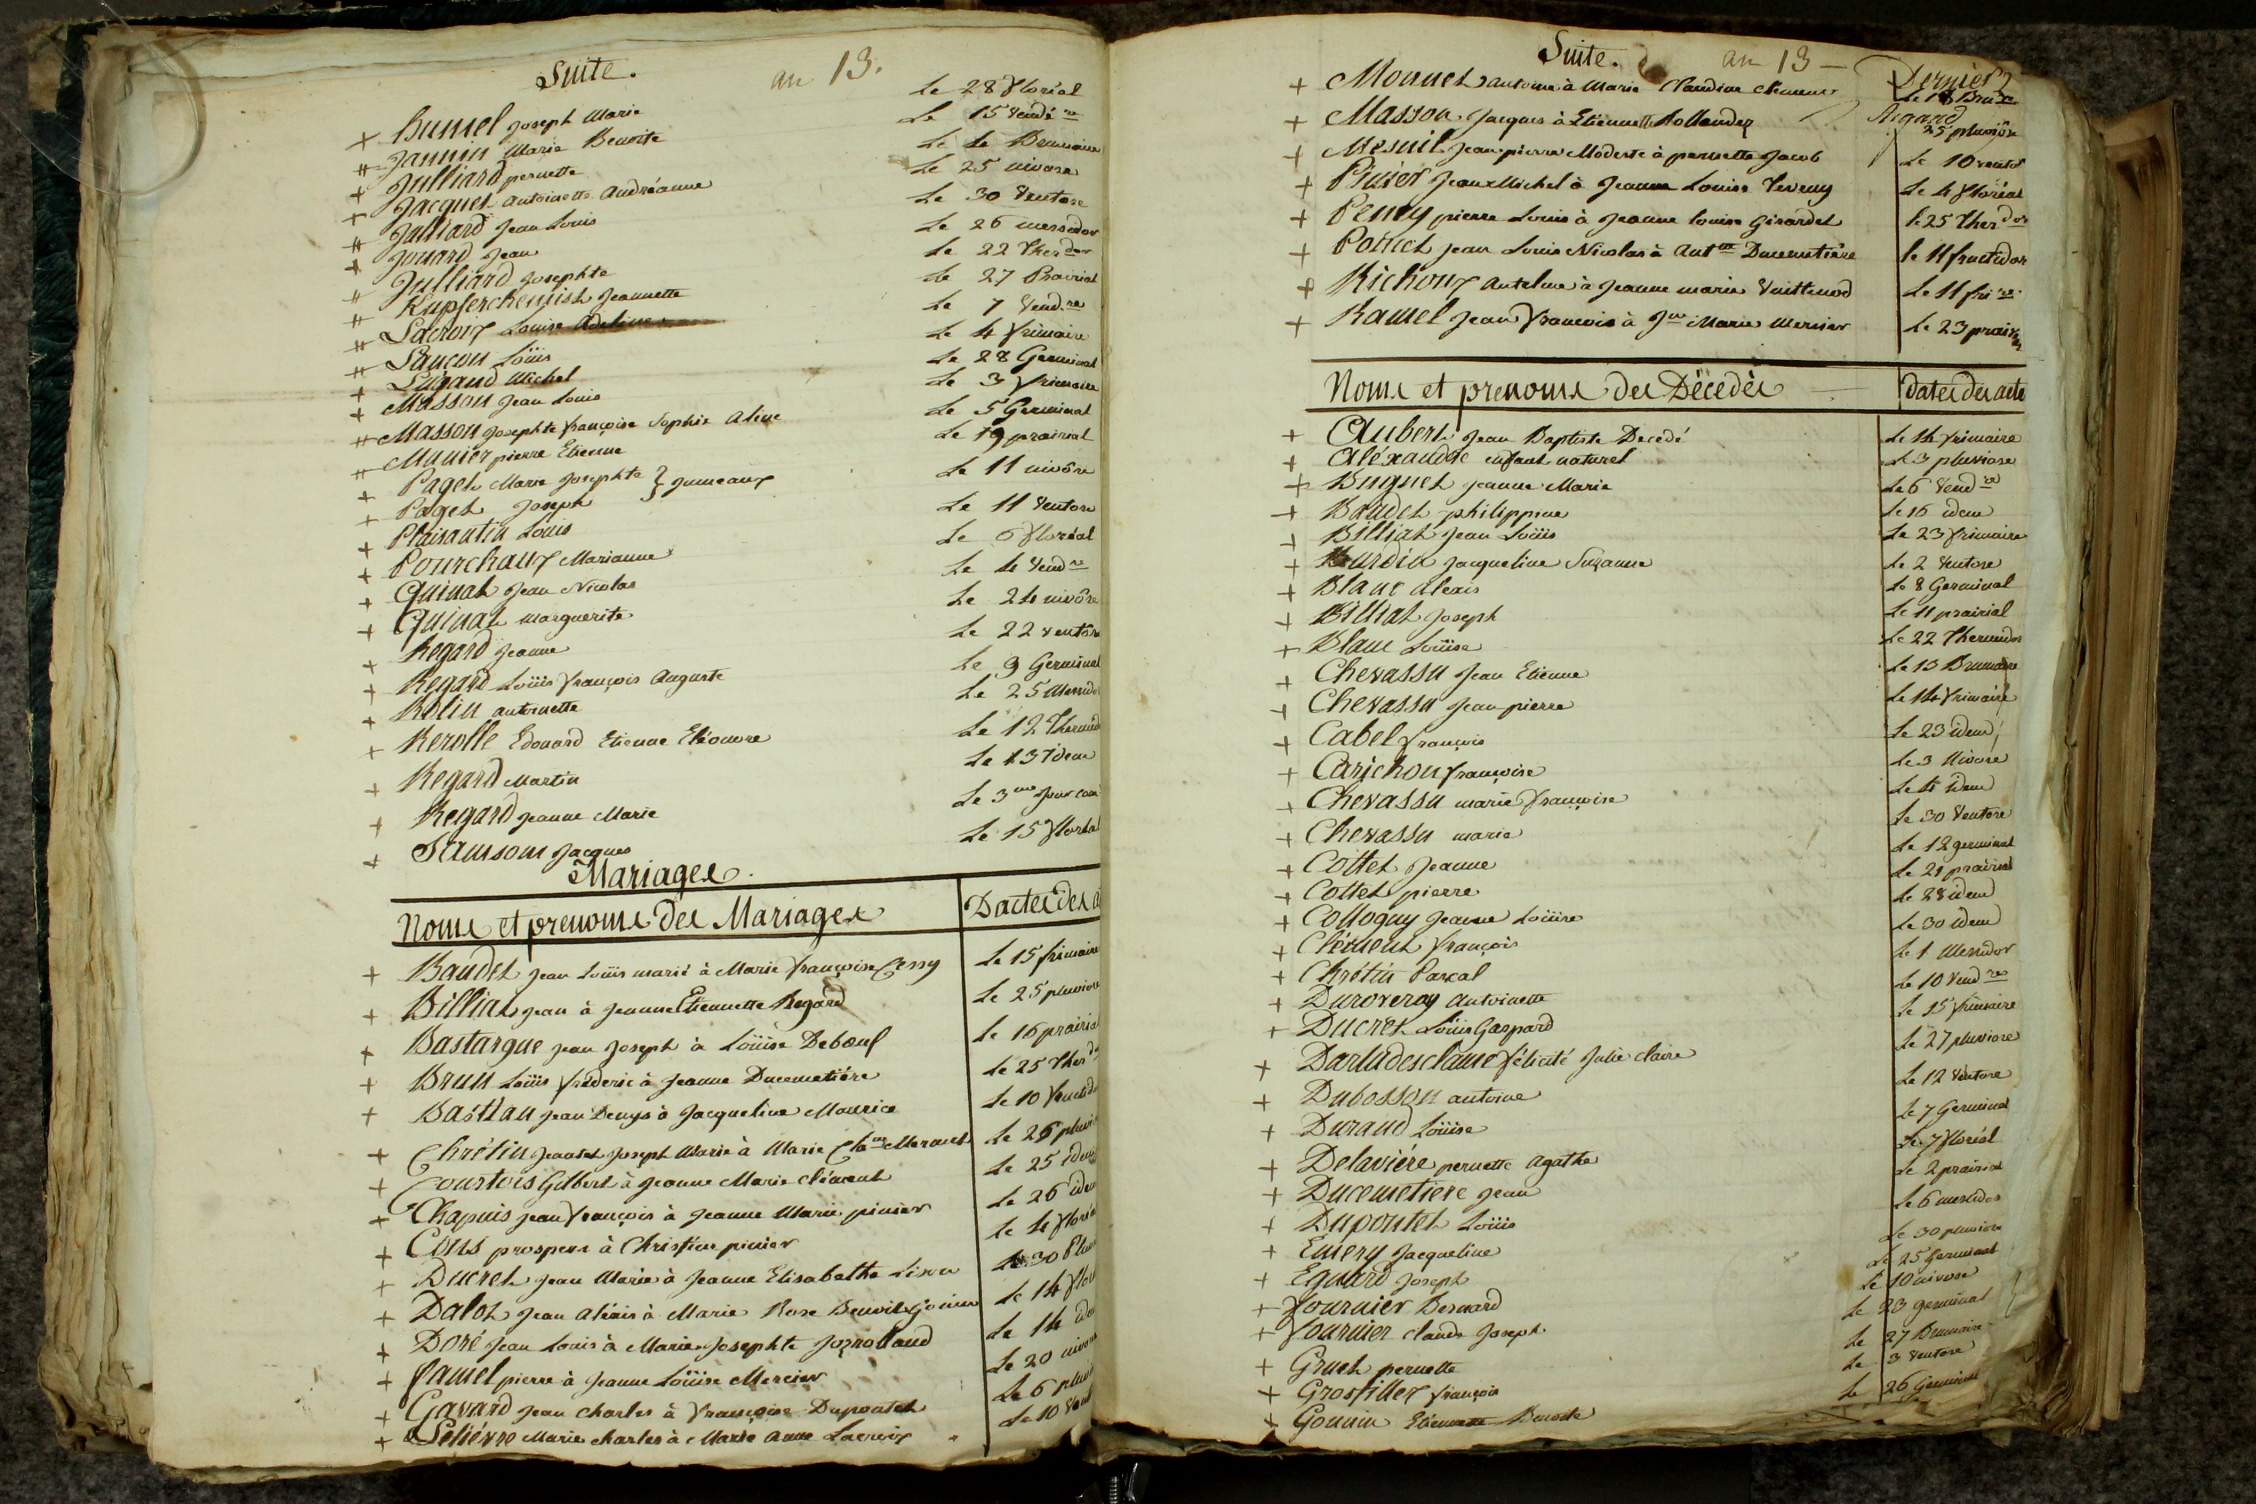 Suite. an 13.
+ Humel Joseph Marie Le 28 floréal
# Jannin Marie Benoite Le 15 Vendé re
+ Julliard pernette Le 4 Brumaire
+ Jacquet Antoinette Andréanne Le 25 nivose
# Julliard Jean Louis Le 30 Ventose
+ Jouard Jean Le 26 messidor
# Julliard Josephte Le 22 Therdor
# Kupferchemish Jeannette Le 27 Prairial
# Lacroix Louise Adeline Le 7 Vend.re
# Lançon Loüis Le 4 frimaire
+ Lugand Michel Le 28 Germinal
+ Masson Jean Louis Le 3 frimaire
# Masson Josephte françoise Sophie Aline Le 5 Germinal
# Munier pierre Etienne Le 19 prairial
+ Paget Marie Josephte } Jumeaux Le 11 nivôse
+ Paget Joseph
+ Plaisantin Louis Le 11 Ventose
+ Pourchaux Marianne Le 6 floréal
+ Quinat Jean Nicolas Le 4 Vendre
+ Quinat marguerite Le 24 nivôse
+ Regard Jeanne Le 22 ventôse
+ Regard Loüis françois Auguste Le 9 Germinal
+ Rolin antoinette Le 25 Messido
+ Rerolle Edouard Etienne Eléonore Le 12 Thermid
+ Regard Martin Le 13 idem
+ Regard Jeanne Marie Le 3me Jour com
+ Samsom Jacques Le 15 floréal
Mariages.
Noms et prenoms des Mariages Dactes des a
+ Baudet Jean Loüis marié à Marie françoise Cessy Le 15 frimaire
+ Billiat Jean à Jeanne Etiennette Regard Le 25 pluviose
+ Bastarque Jean Joseph à Loüise Debœuf Le 16 prairial
+ Brun Loüis fréderic à Jeanne Ducemetiére Le 25 Therd
+ Bastian Jean Denys à Jacqueline Maurice Le 10
+ Chrétin Jeantet Joseph Marie à Marie Le 26 pluvi
+ Courtois Gilbert à Jeanne Marie clément Le 25 idem
+ Chapuis Jean françois à Jeanne Marie pinier Le 26 idem
+ Cons prosper à Christine pinier Le 4 floréa
+ Ducret Jean Marie à Jeanne Elisabethe Le 30 Pluv
+ Daloz Jean Aléxis à Marie Rose Benoite Le 14 flor
+ Doré Jean Louis à Marie Josephte Jozrolland Le 14 ide
+ Famel pierre à Jeanne Loüise Mercier Le 20 nivose
+ Gavard Jean Charles à françoise Dupontet Le 6 pluvi
+ Leliévre Marie charles à Marie Anne Lacroix Le 10 Vent
Suite. an 13 — Dernier
+ Monnet antoine à Marie Claudine Clément Le 18 Bru re
Rigand
+ Masson Jacques à Etiennette Rollandez 25 pluviôse
+ Mesnil Jean pierre Modeste à pernette Jacob Le 10 ventos
+ Pinier Jean Michel à Jeanne Louise Le 4 floréal
+ Penny pierre Louis à Jeanne louise Girardet le 25 Therdor
+ Poinct Jean Louis Nicolas à Antne Ducemetiére le 11 fructidor
+ Richoux Antelme à Jeanne marie Le 11 fri re
+ Ramel Jean françois à Jne Marie Mercier Le 23 prairi
Noms et prenoms des Décedés dates des acte
+ Aubert Jean Baptiste Decedé Le 14 frimaire
+ Aléxandre enfant naturel Le 3 pluviose
+ Buguet Jeanne Marie Le 6 Vendre
+ Baudet philippine Le 16 idem
+ Billiat Jean Loüis Le 23 frimaire
+ Burdin Jacqueline Suzanne Le 2 Ventose
+ Blanc Alexis Le 8 Germinal
+ Billiat Joseph Le 11 prairial
+ Blanc Loüise Le 22 Thermidor
+ Chevassu Jean Etienne Le 13 Brumaire
+ Chevassu Jean pierre Le 14 frimaire
+ Cabel françois Le 23 idem
+ Carichon françoise Le 3 Nivose
+ Chevassu marie françoise Le 4 idem
+ Chevassu marie Le 30 Ventose
+ Cottet Jeanne Le 12 germinal
+ Cottet pierre Le 21 prairial
+ Colloguy Jeanne Loüise Le 28 idem
+ Clément françois Le 30 idem
+ Chrétin Pascal Le 1 Messidor
+ Duroveray Antoinette Le 10 Vendre
+ Ducret Loüis Gaspard Le 15 frimaire
+ Darludesclame félicité Julie claire Le 27 pluviose
+ Dubosson antoine Le 12 Ventose
+ Durand Loüise Le 7 Germinal
+ Delaviére pernette Agathe Le 7 floréal
+ Ducemetiere Jean Le 2 prairial
+ Dupontet Loüis Le 6 messidor
+ Emery Jacqueline Le 30 pluviose
+ Eguard Joseph Le 25 germinal
+ fournier Bernard Le 10 nivose
+ fournier Claude Joseph. Le 23 germinal
+ Gruet pernette Le 27 Brumaire
+ Grosfillex françois Le 3 Ventose
+ Gonnin Etiennette Benoite Le 26 Germinal